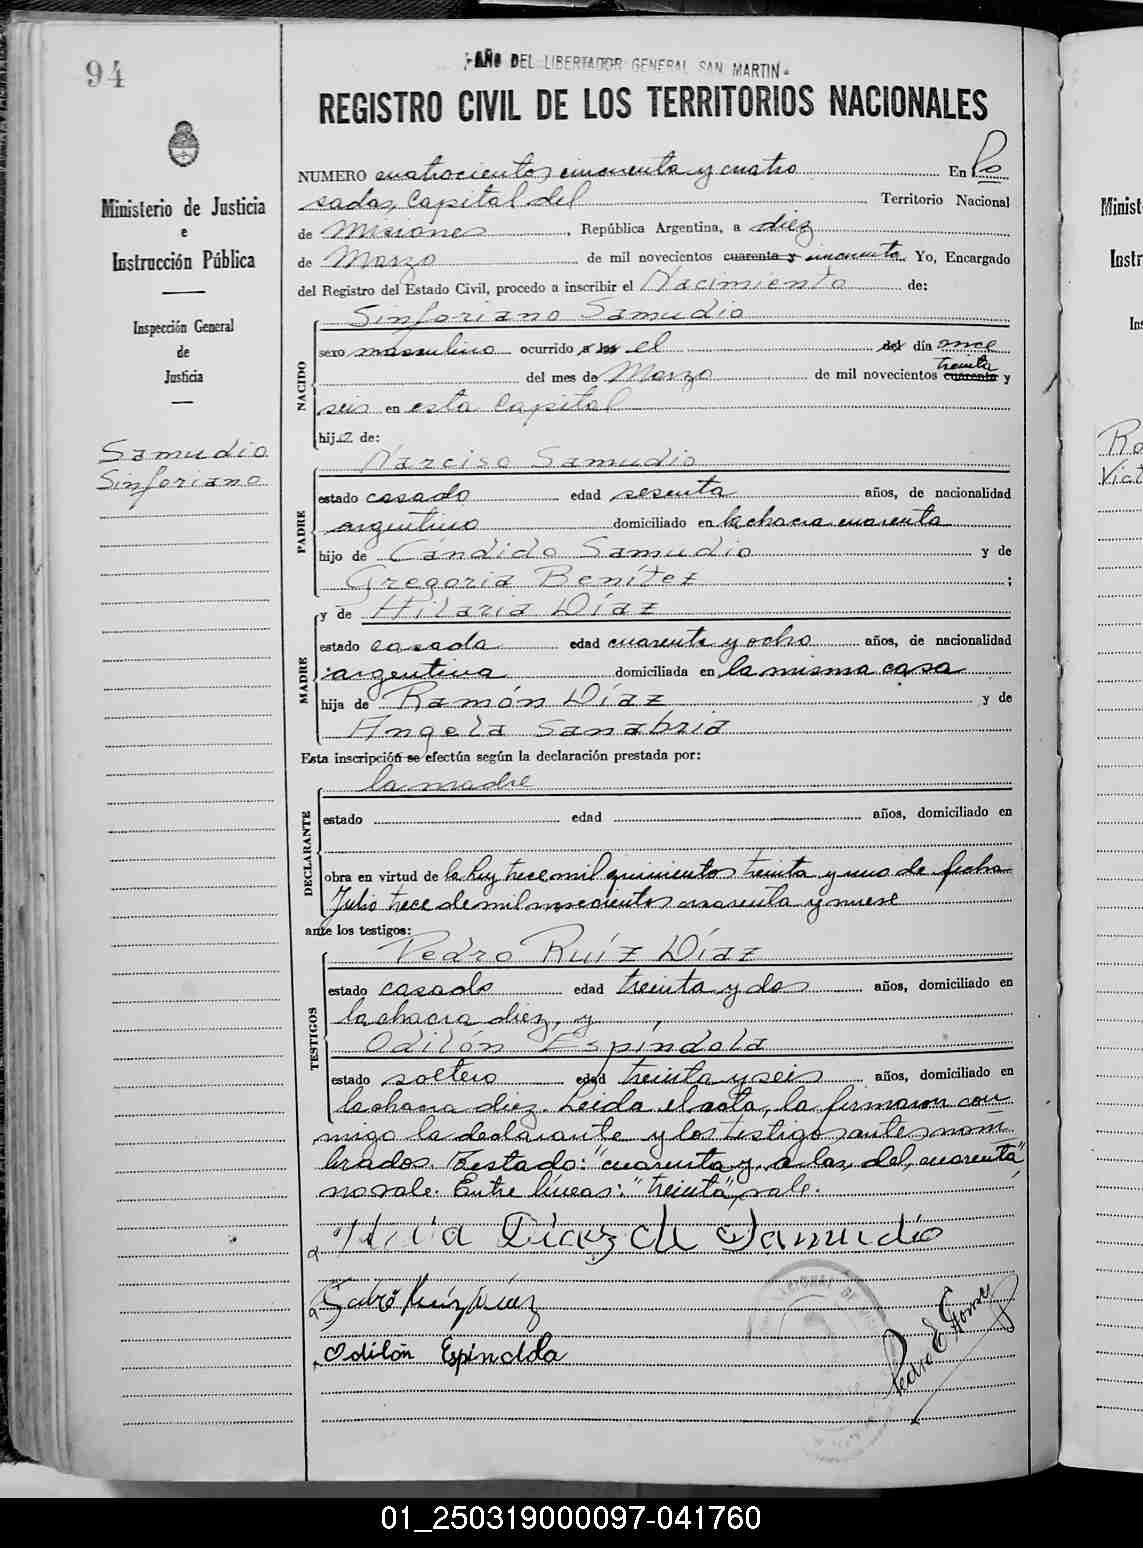 94
"AÑO DEL LIBERTADOR GENERAL SAN MARTIN"
REGISTRO CIVIL DE LOS TERRITORIOS NACIONALES
Ministerio de Justicia
e
Instrucción Pública
Inspección General
de
Justicia
Samudio
Sinforiano
NUMERO cuatrocientos cincuenta y cuatro En Po
sadas, Capital del Territorio Nacional
de Misiones, República Argentina, a diez
de Marzo de mil novecientos cuarenta y cincuenta. Yo, Encargado
del Registro del Estado Civil, procedo a inscribir el Nacimiento de:
NACIDO
Sinforiano Samudio
sexo masculino ocurrido a las el del día once
treinta
del mes de Marzo de mil novecientos cuarenta y
seis en esta Capital
hijo de:
PADRE
Narciso Samudio
estado casado edad sesenta años, de nacionalidad
argentino domiciliado en la chacra cuarenta
hijo de Cándido Samudio y de
Gregoria Benítez;
MADRE
y de Hilaria Díaz
estado casada edad cuarenta y ocho años, de nacionalidad
argentina domiciliada en la misma casa
hija de Ramón Díaz y de
Angela Sanabria
Esta inscripción se efectúa según la declaración prestada por:
DECLARANTE
la madre
estado edad años, domiciliado en
obra en virtud de la ley trece mil quinientos treinta y uno de fecha
Julio trece de mil novecientos cuarenta y nueve
ante los testigos:
TESTIGOS
Pedro Ruíz Díaz
estado casado edad treinta y dos años, domiciliado en
la chacra diez, y
Odilón Espíndola
estado soltero edad treinta y seis años, domiciliado en
la chacra diez. Leida el acta, la firmaron con
migo la declarante y los testigos antes nom
brados. Testado: "cuarenta y, a las, del, cuarenta"
no vale. Entre líneas: "treinta", vale.
Díaz de Samudio
Pedro Ruíz Díaz
Odilón Espíndola
Pedro E. Gomez
Rо
Víct
Minist
Instr
Ins
01_250319000097-041760